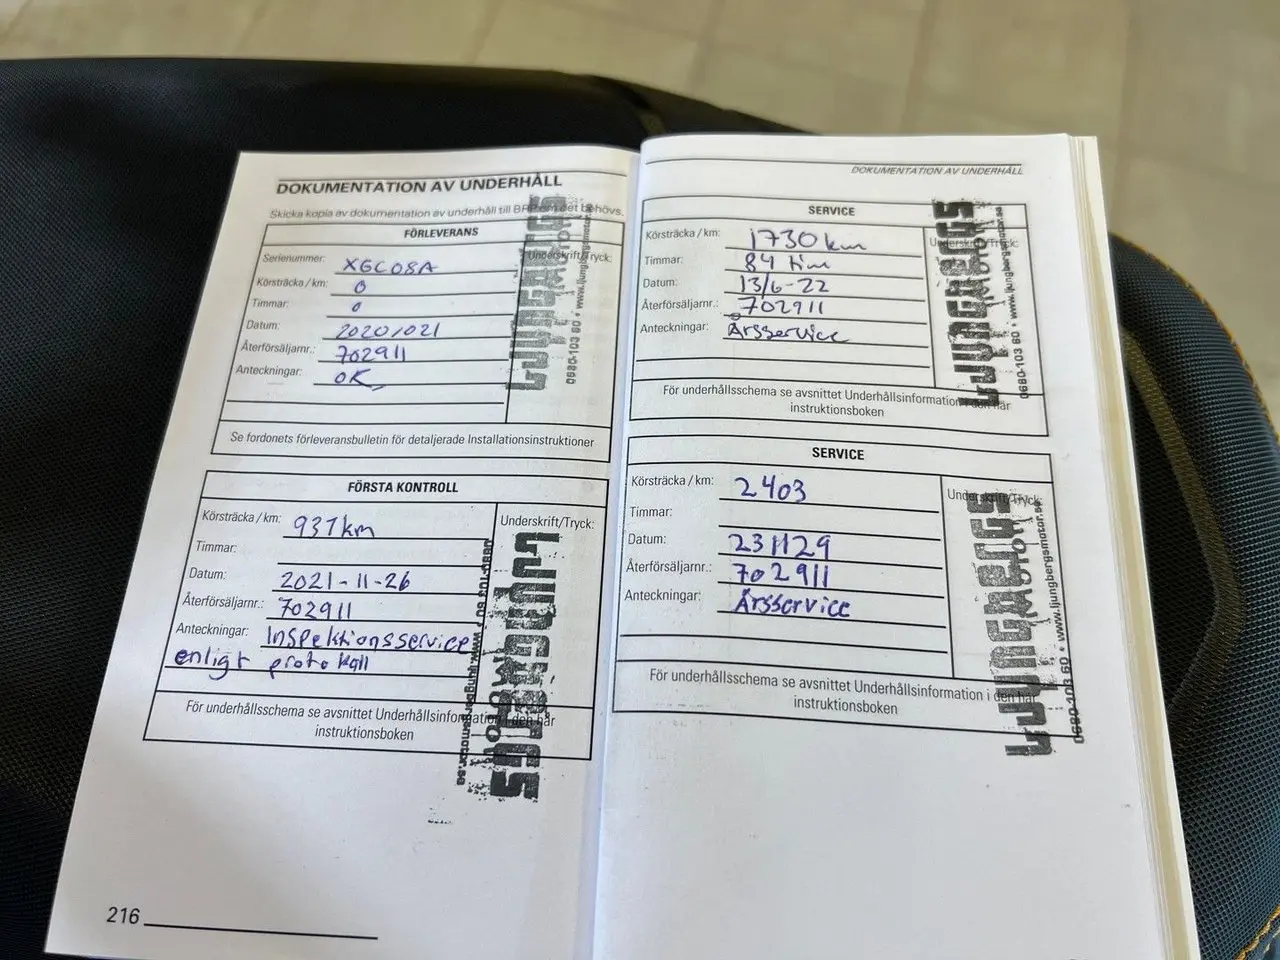 DOKUMENTATION AV UNDERHÅLL
Skicka kopia av dokumentation av underhåll till BRP om det behövs.
FÖRLEVERANS
Serienummer: XGC08A
Underskrift/Tryck:
Körsträcka / km: 0
Timmar: 0
Datum: 2020/021
Återförsäljarnr.: 702911
Anteckningar: OK
LJUNGBERGS
MOTOR
0680-103 60 • www.ljungbergsmotor.se
Se fordonets förleveransbulletin för detaljerade Installationsinstruktioner
FÖRSTA KONTROLL
Körsträcka / km: 937km
Underskrift/Tryck:
Timmar:
Datum: 2021-11-26
Återförsäljarnr.: 702911
Anteckningar: Inspektionsservice
enligt protokall
LJUNGBERGS
MOTOR
0680-103 60 • www.ljungbergsmotor.se
För underhållsschema se avsnittet Underhållsinformation i den här
instruktionsboken
216
DOKUMENTATION AV UNDERHÅLL
SERVICE
Körsträcka / km: 1730 km
Underskrift/Tryck:
Timmar: 84 tim
Datum: 13/6-22
Återförsäljarnr.: 702911
Anteckningar: Årsservice
LJUNGBERGS
MOTOR
0680-103 60 • www.ljungbergsmotor.se
För underhållsschema se avsnittet Underhållsinformation i den här
instruktionsboken
SERVICE
Körsträcka / km: 2403
Underskrift/Tryck:
Timmar:
Datum: 231129
Återförsäljarnr.: 702911
Anteckningar: Årsservice
LJUNGBERGS
MOTOR
0680-103 60 • www.ljungbergsmotor.se
För underhållsschema se avsnittet Underhållsinformation i den här
instruktionsboken